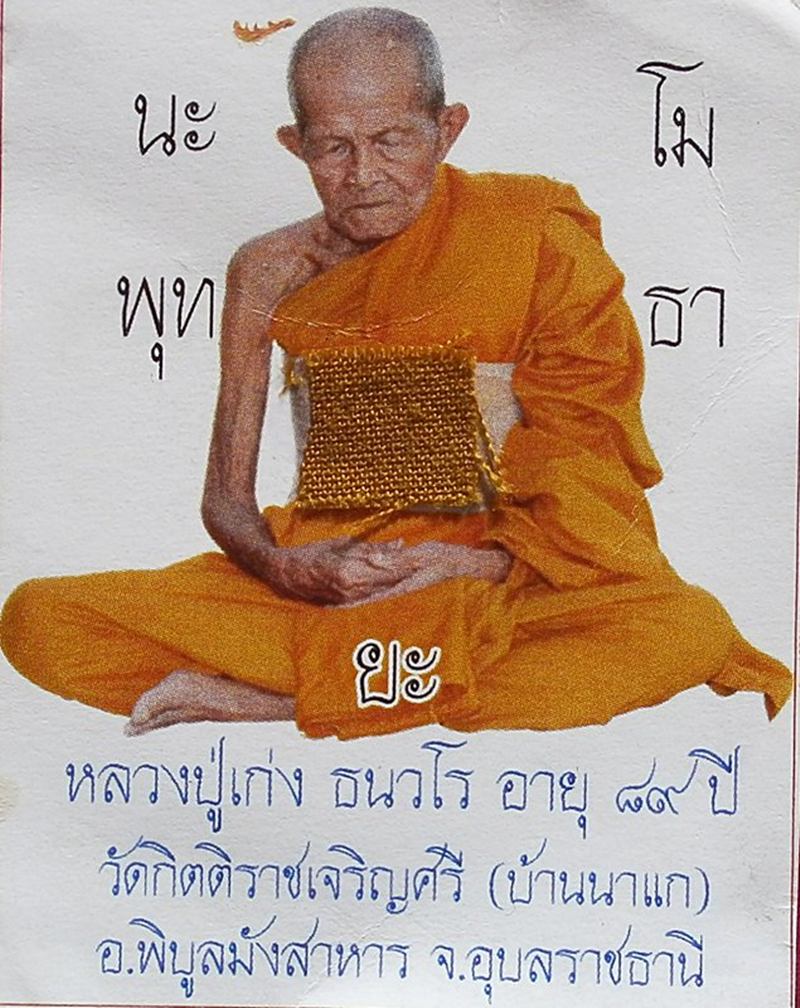 นะ โม
พุท ธา
ยะ
หลวงปู่เก่ง ธนวโร อายุ ๘๙ ปี
วัดกิตติราชเจริญศรี (บ้านนาแก)
อ.พิบูลมังสาหาร จ.อุบลราชธานี